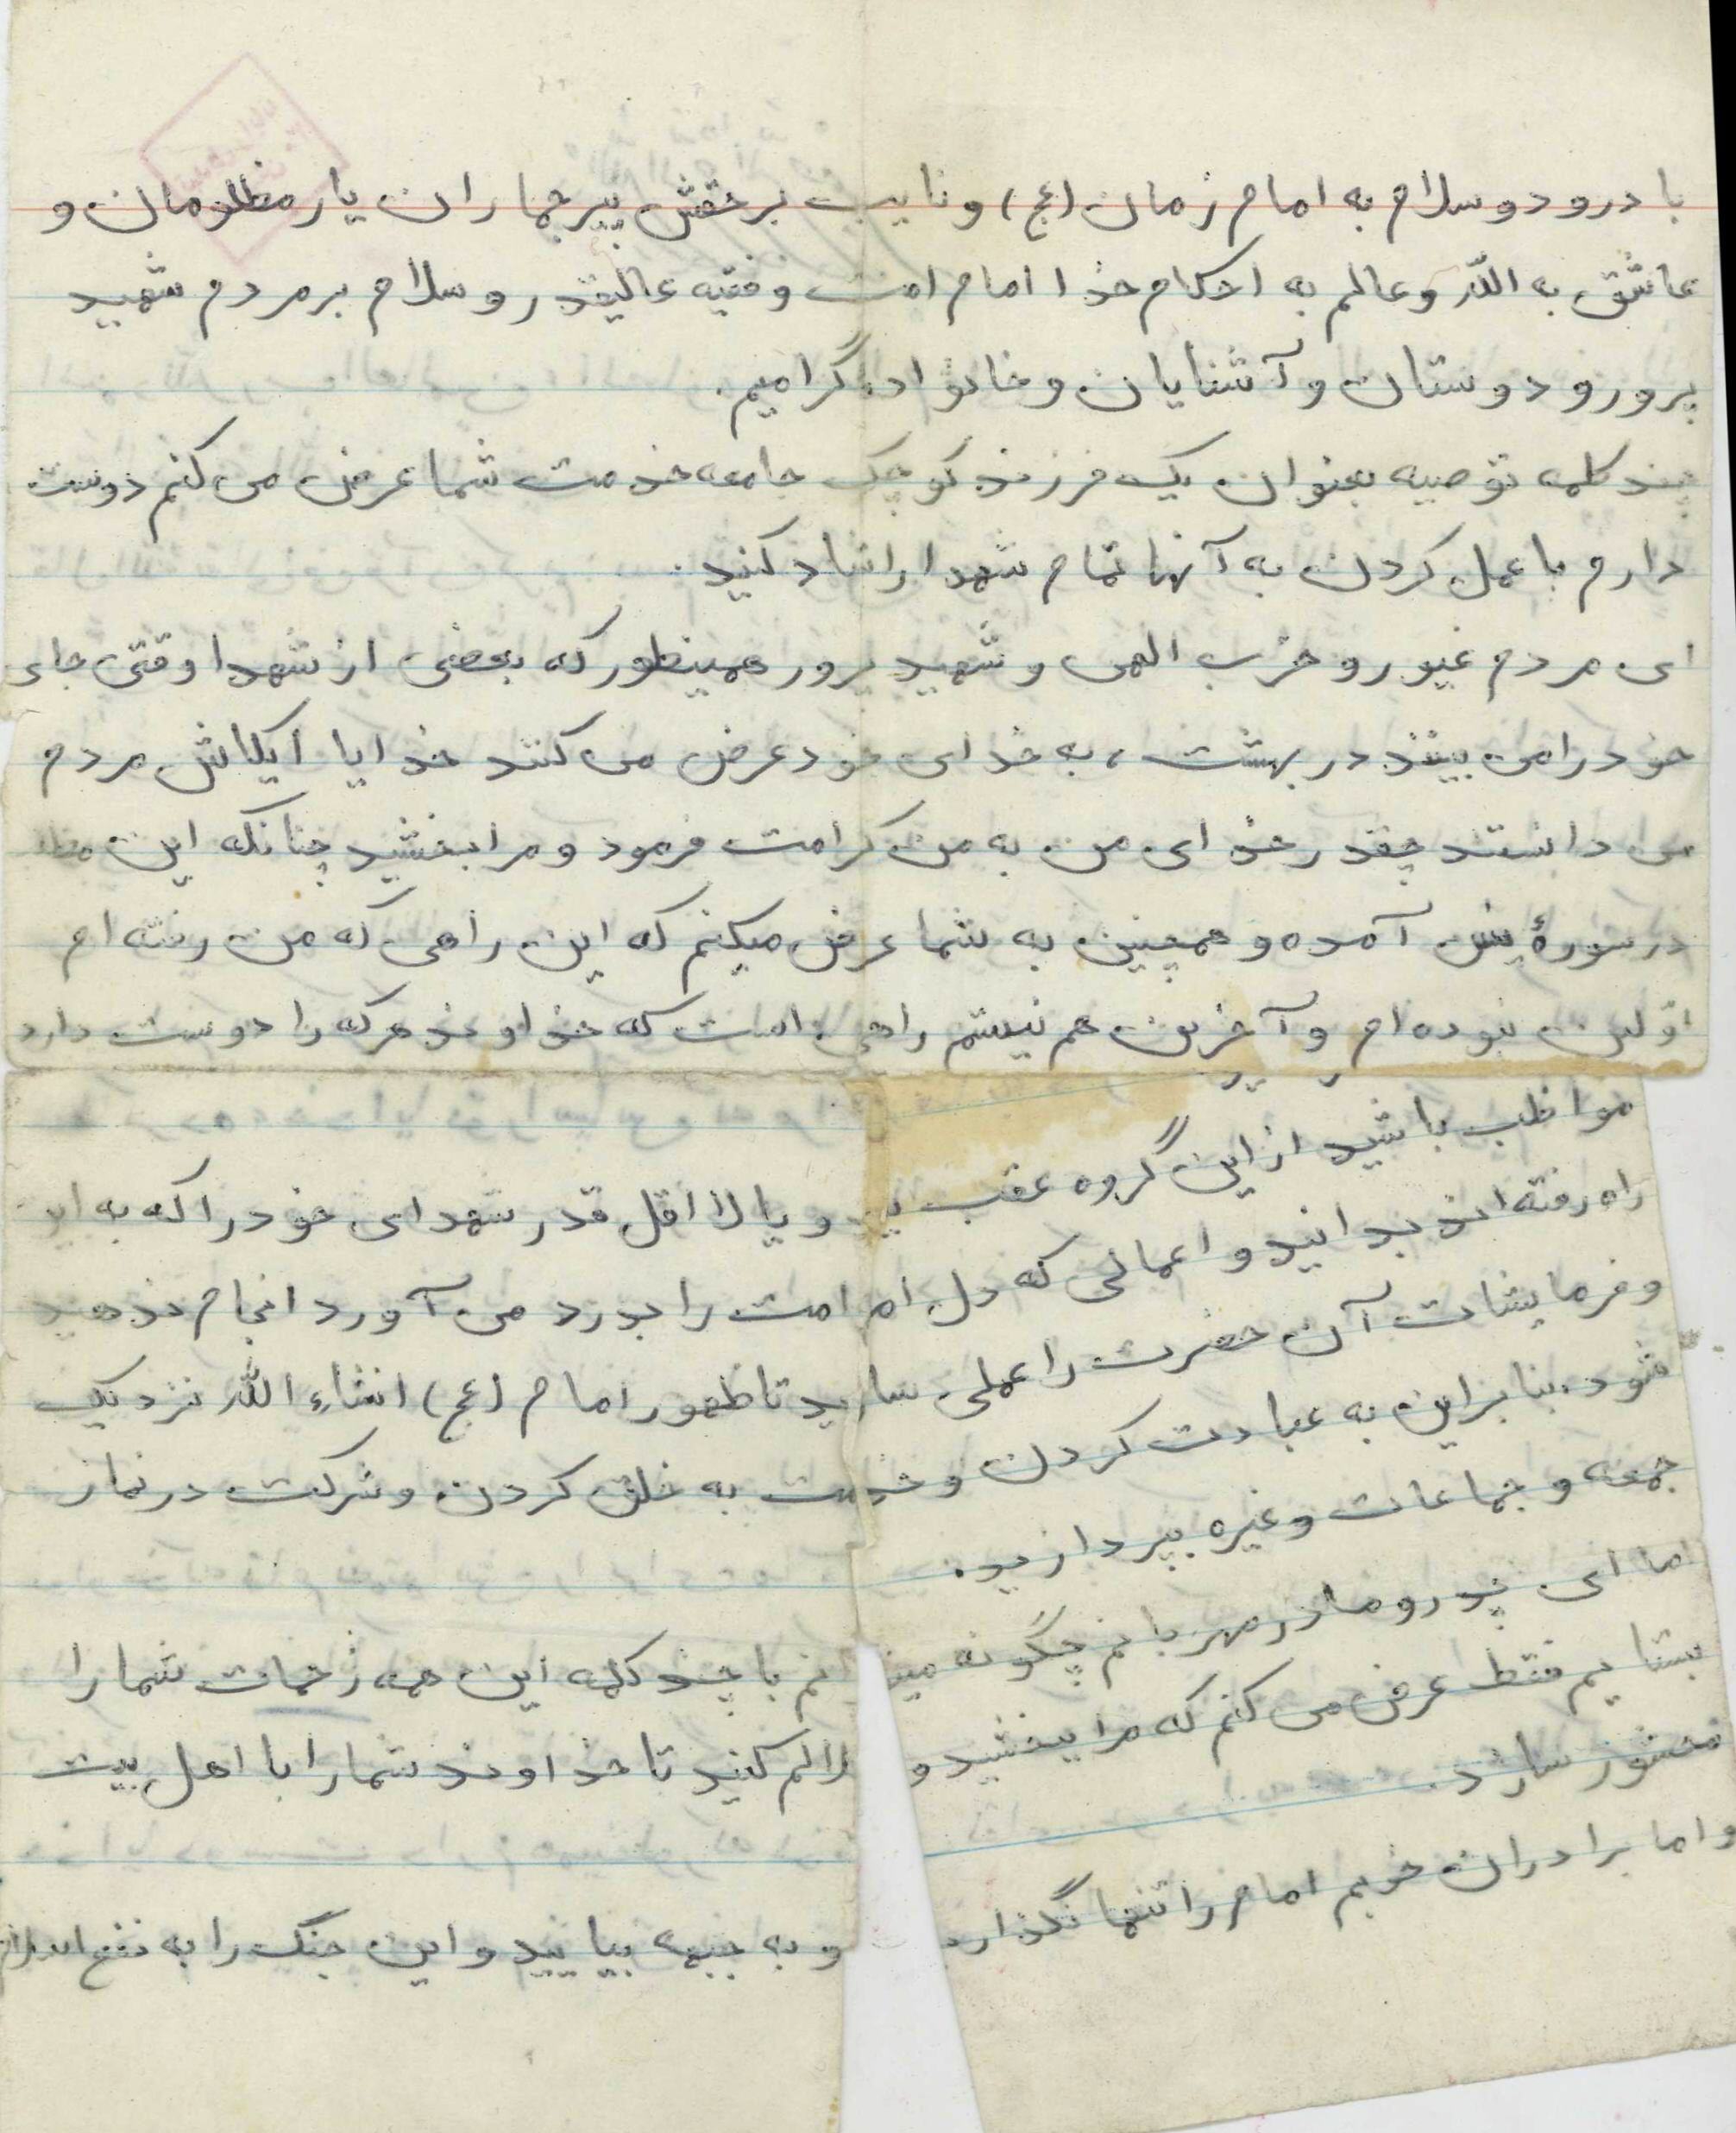 با درود و سلام به امام زمان (عج) و نایب برحقش پیر جماران یار مظلومان و
عاشق به الله و عالم به احکام خدا امام امت و فقیه عالیقدر و سلام بر مردم شهید
پرور و دوستان و آشنایان و خانواده گرامیم.
چند کلمه توصیه بعنوان یک فرزند کوچک جامعه خدمت شما عرض می کنم دوست
دارم با عمل کردن به آنها تمام شهدا را شاد کنید.
ای مردم غیور و حزب الهی و شهید پرور همینطور که بعضی از شهدا وقتی جای
خود را می بینند در بهشت، به خدای خود عرض می کنند خدایا ایکاش مردم
می دانستند چقدر خدای من به من کرامت فرمود و مرا بخشید چنانکه این
در سورهٔ یس آمده و همچنین به شما عرض میکنم که این راهی که من رفته ام
اوّلین نبوده ام و آخرین هم نیستم راهی است که خداوند هر که را دوست دارد
مواظب باشید از این گروه عقب و یا لااقل قدر شهدای خود را که به این
راه رفته اند بدانید و اعمالی که دل امام امت را بدرد می آورد انجام ندهید
و فرمایشات آن حضرت را عملی سازید تا ظهور امام (عج) انشاءالله نزدیک
شود. بنابراین به عبادت کردن و خدمت به خلق کردن و شرکت در نماز
جمعه و جماعات و غیره بپردازید.
اما ای پدر و مادر مهربانم چگونه میتوانم با چند کلمه این همه زحمات شما را
بستایم فقط عرض می کنم که مرا ببخشید و حلالم کنید تا خداوند شما را با اهل بیت
محشور سازد.
و اما برادران خوبم امام را تنها نگذارید و به جبهه بیایید و این جنگ را به نفع اسلام